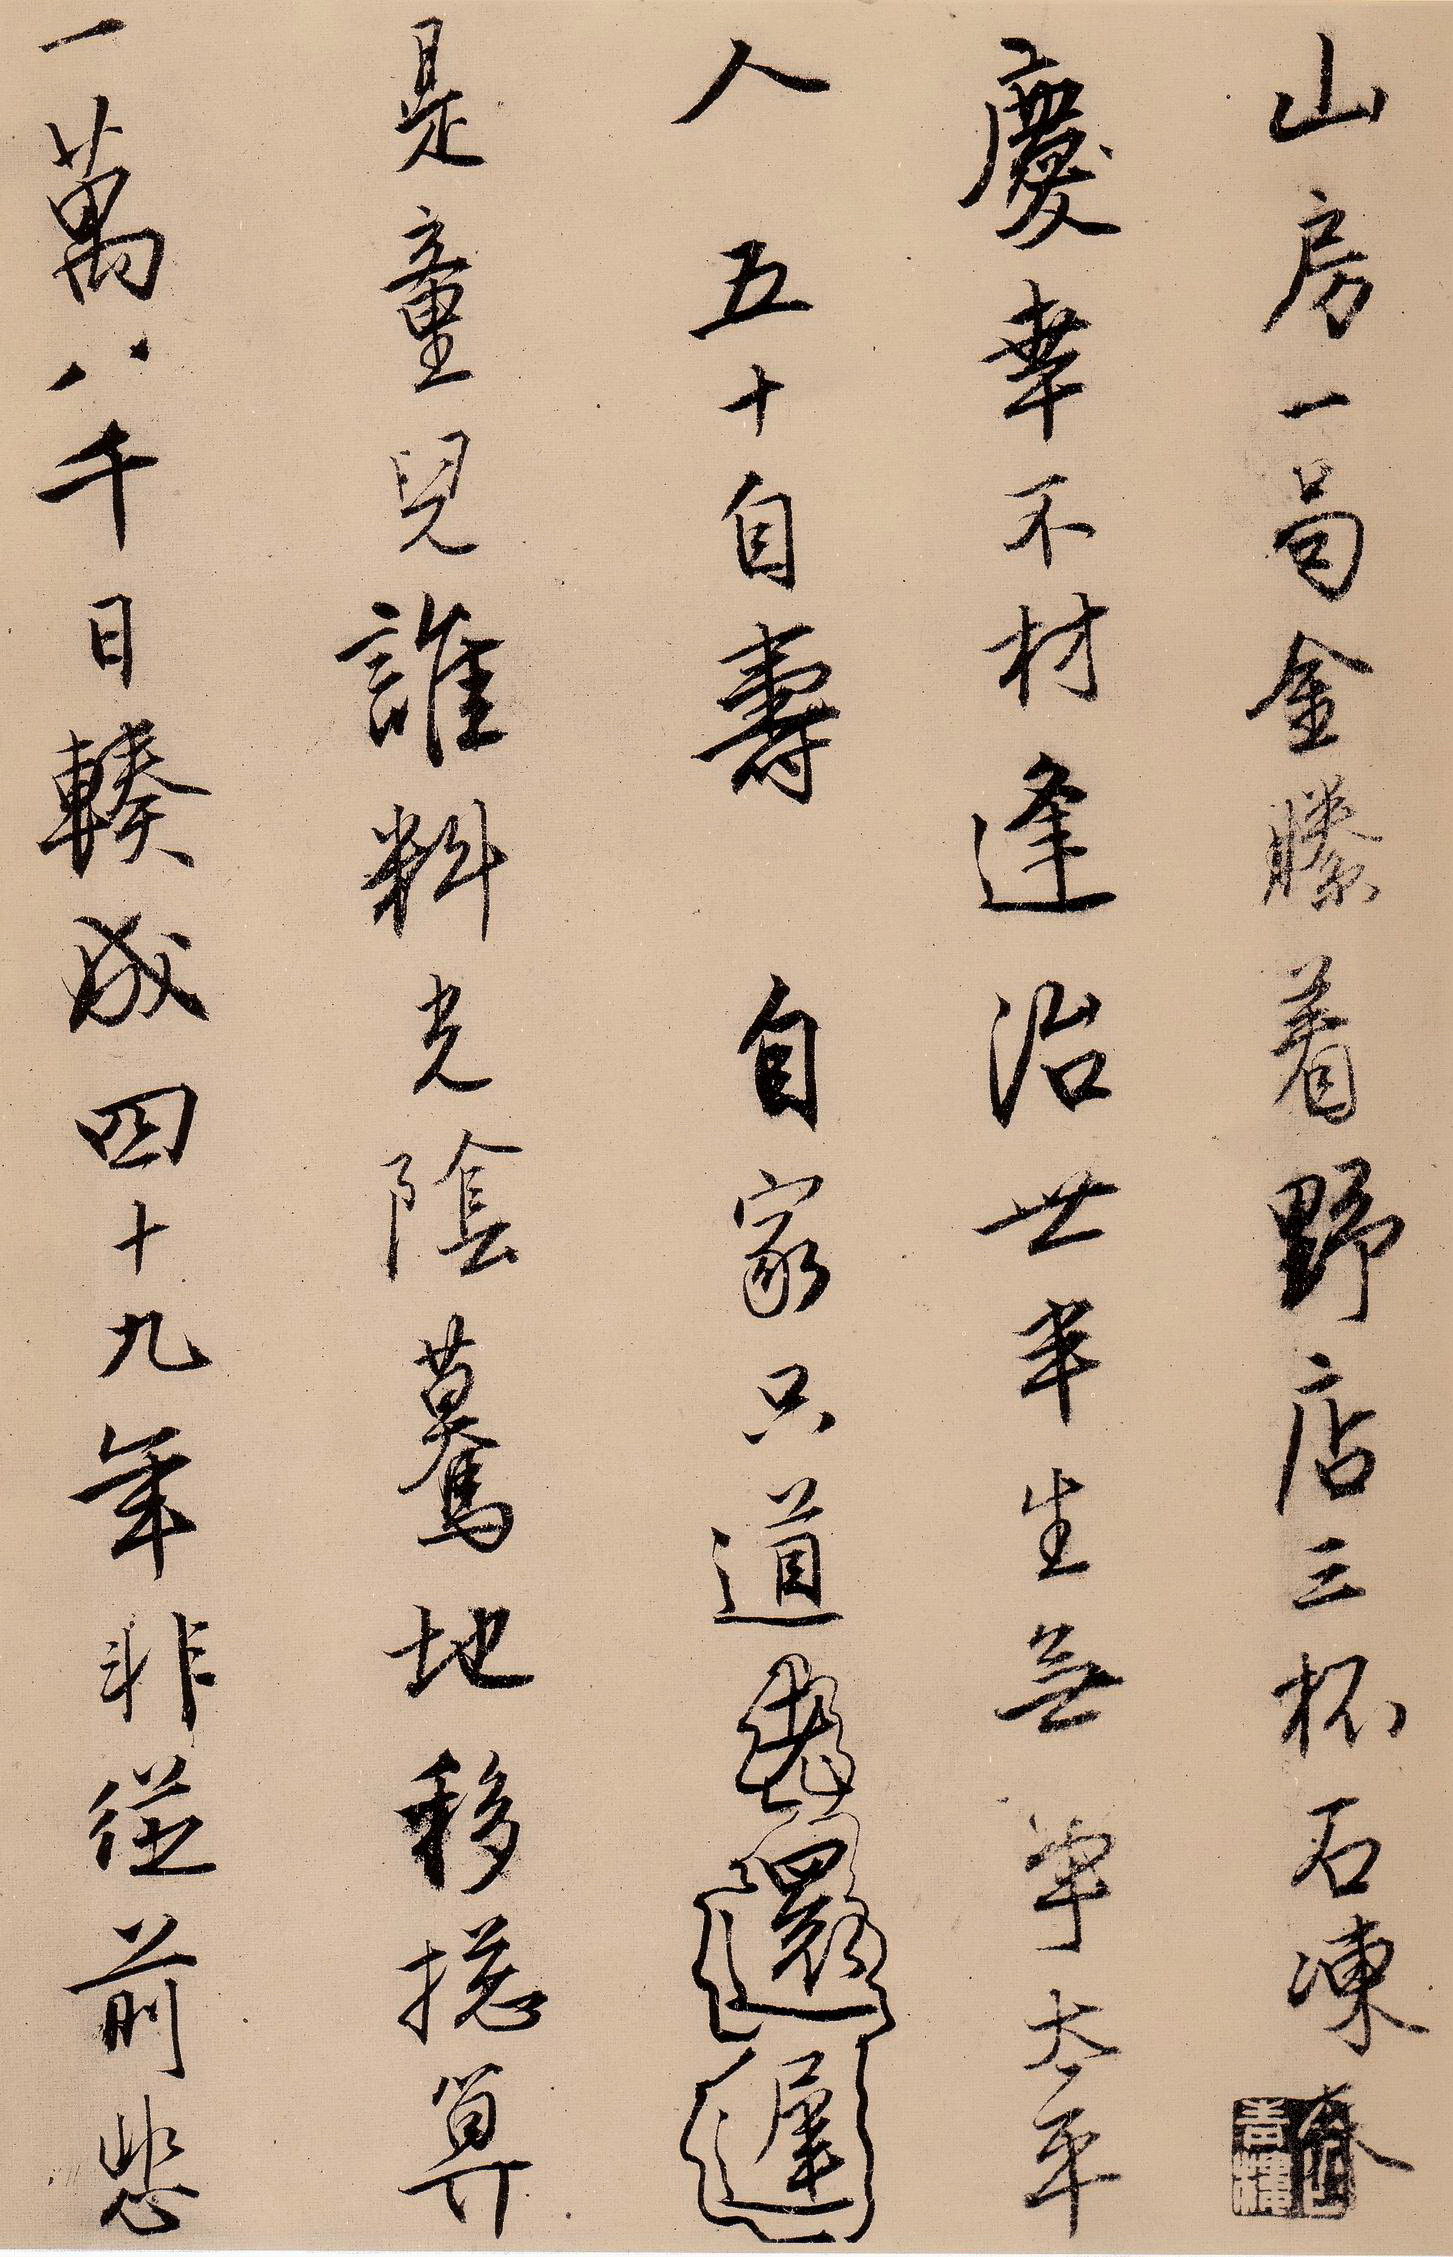 山房一局金縢着野店三杯石凍春
慶幸不材逢治世半生無事太平
人 五十自壽 自家只道老還遲
是童兒誰料光陰驀地移捴算
一萬八千日輳成四十九年非從前悲